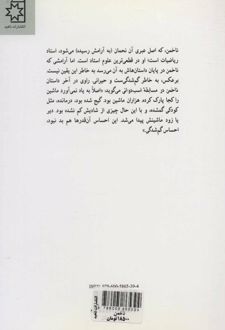 انتشارات ناهید
ناخمن، که اصل عبری آن نحمان (به آرامش رسیده) می‌شود، استاد
ریاضیات است؛ او در قطعی‌ترین علوم استاد است. اما آرامشی که
ناخمن در پایان داستان‌هاش به آن می‌رسد به خاطر این یقین نیست.
برعکس، به خاطر گم‌شدگی‌ست و حیرانی. راوی در آخر داستان
در مسابقهٔ اسب‌دوانی می‌گوید: «اصلاً به یاد نمی‌آورد ماشین
را کجا پارک کرده. هزاران ماشین بود. گیج شده بود، درمانده، مثل
کودکی گمشده، و با این حال چیزی از شادیش کم نشده بود. دیر
یا زود ماشینش پیدا می‌شد. این احساس آن‌قدرها هم بد نبود،
احساس گم‌شدگی.»
ناخمن
تومان